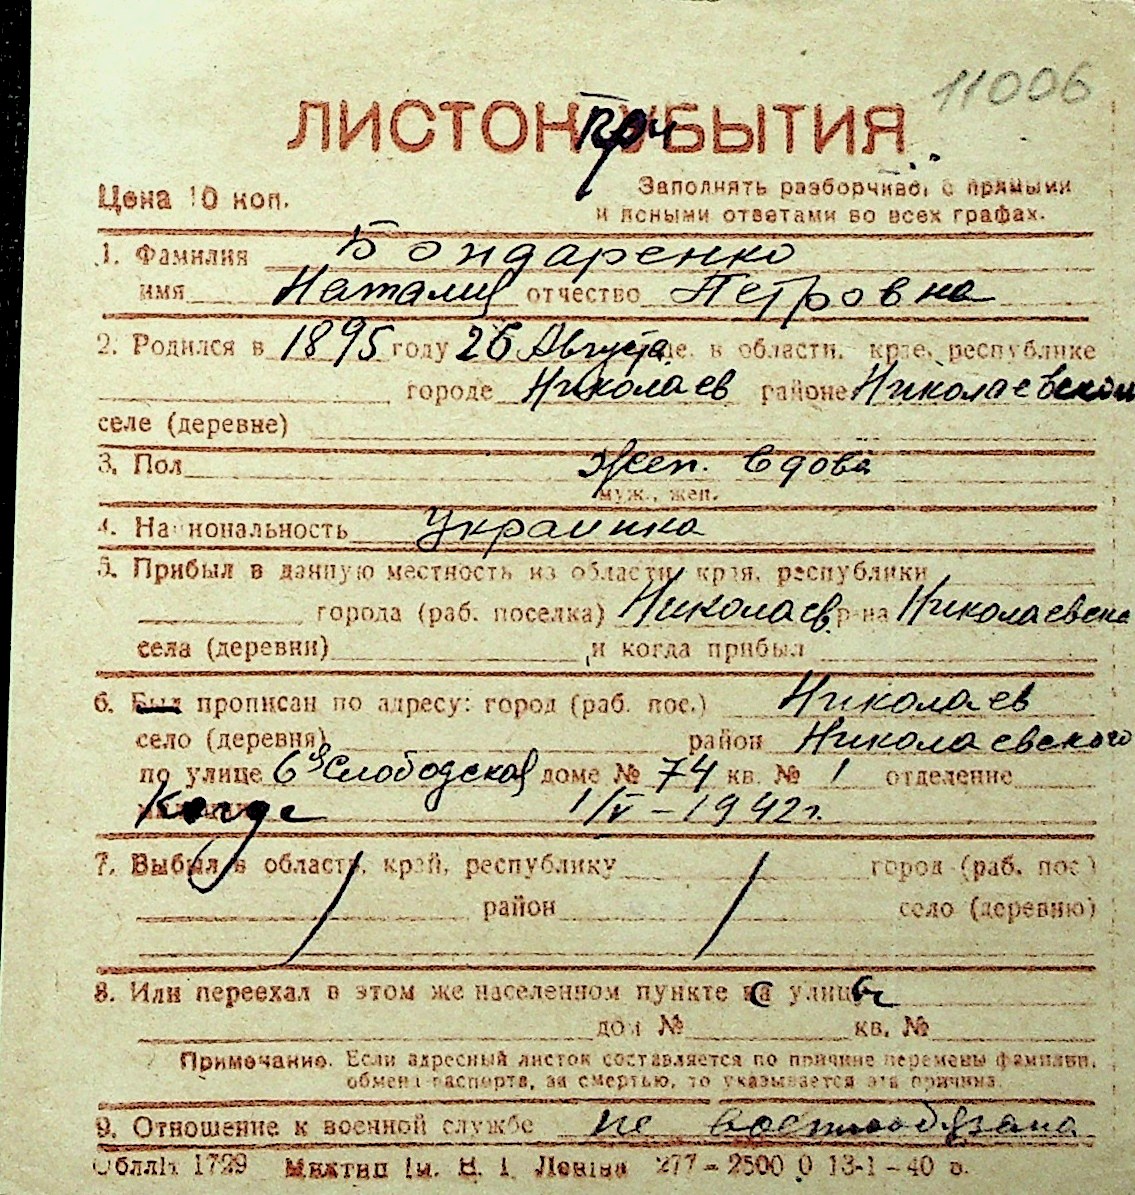 11006
ЛИСТОК УБЫТИЯ
При
Цена 10 коп.
Заполнять разборчиво, с прямыми
и ясными ответами во всех графах.
1. Фамилия Бондаренко
имя Наталия отчество Петровна
2. Родился в 1895 году 26 Августа де. в области, крае, республике
городе Николаев районе Николаевском
селе (деревне)
3. Пол Жен. вдова
муж., жен.
4. Национальность Украинка
5. Прибыл в данную местность из области, края, республики
города (раб. поселка) Николаев р-на Николаевска
села (деревни) и когда прибыл
6. Был прописан по адресу: город (раб. пос.) Николаев
село (деревня) район Николаевского
по улице 6я Слободская доме № 74 кв. № 1 отделение
Когда 1/V-1942г.
7. Выбыл в область, край, республику город (раб. пос.)
район село (деревню)
8. Или переехал в этом же населенном пункте с улицы
дом № кв. №
Примечание. Если адресный листок составляется по причине перемены фамилии,
обмена паспорта, за смертью, то указывается эта причина.
9. Отношение к военной службе не военнообязана
Обллiт 1729 Миктип iм. В. I. Ленiна 277-2500 0 13-1-40 в.